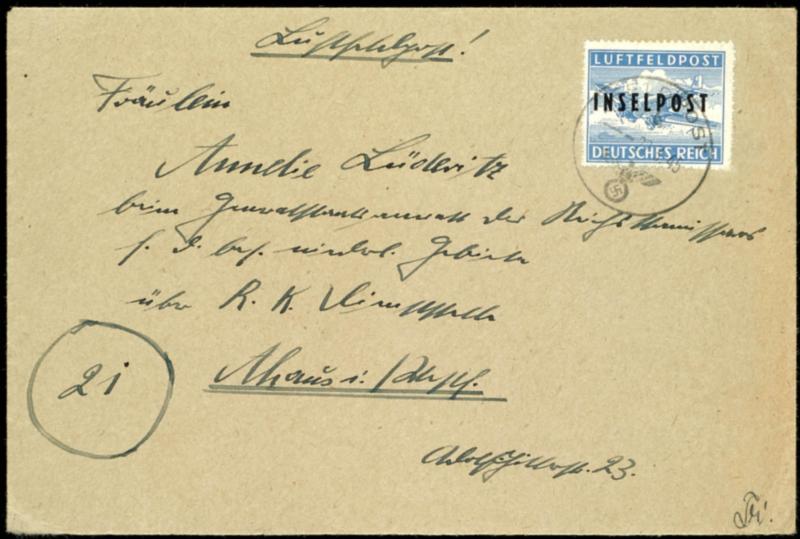 Luftfeldpost!
LUFTFELDPOST
INSELPOST
DEUTSCHES REICH
Fräulein
Annelie Lüderitz
beim Generalstaatsanwalt des Reichskommissars
f. d. bes. niederl. Gebiete
über R. K. Dienststelle
Ahaus i. Westf.
21
Adolf Hitlerstr. 23.